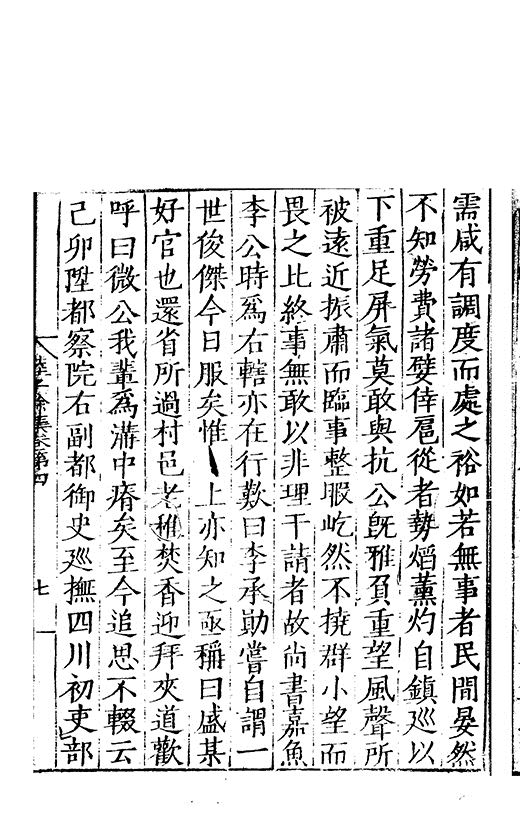 需咸有調度而處之裕如若無事者民間晏然
不知勞費諸嬖倖扈從者勢熖薰灼自鎮廵以
下重足屏氣莫敢與抗公旣雅負重望風聲所
被遠近振肅而臨事整暇屹然不撓群小望而
畏之比終事無敢以非理干請者故尚書嘉魚
李公時爲右轄亦在行歎曰李承勛嘗自謂一
世俊傑今日服矣惟 上亦知之亟稱曰盛某
好官也還省所過村邑老稚焚香迎拜夾道歡
呼曰微公我輩爲溝中瘠矣至今追思不輟云
己卯陞都察院右副都御史廵撫四川初吏部
餘集卷第四 七